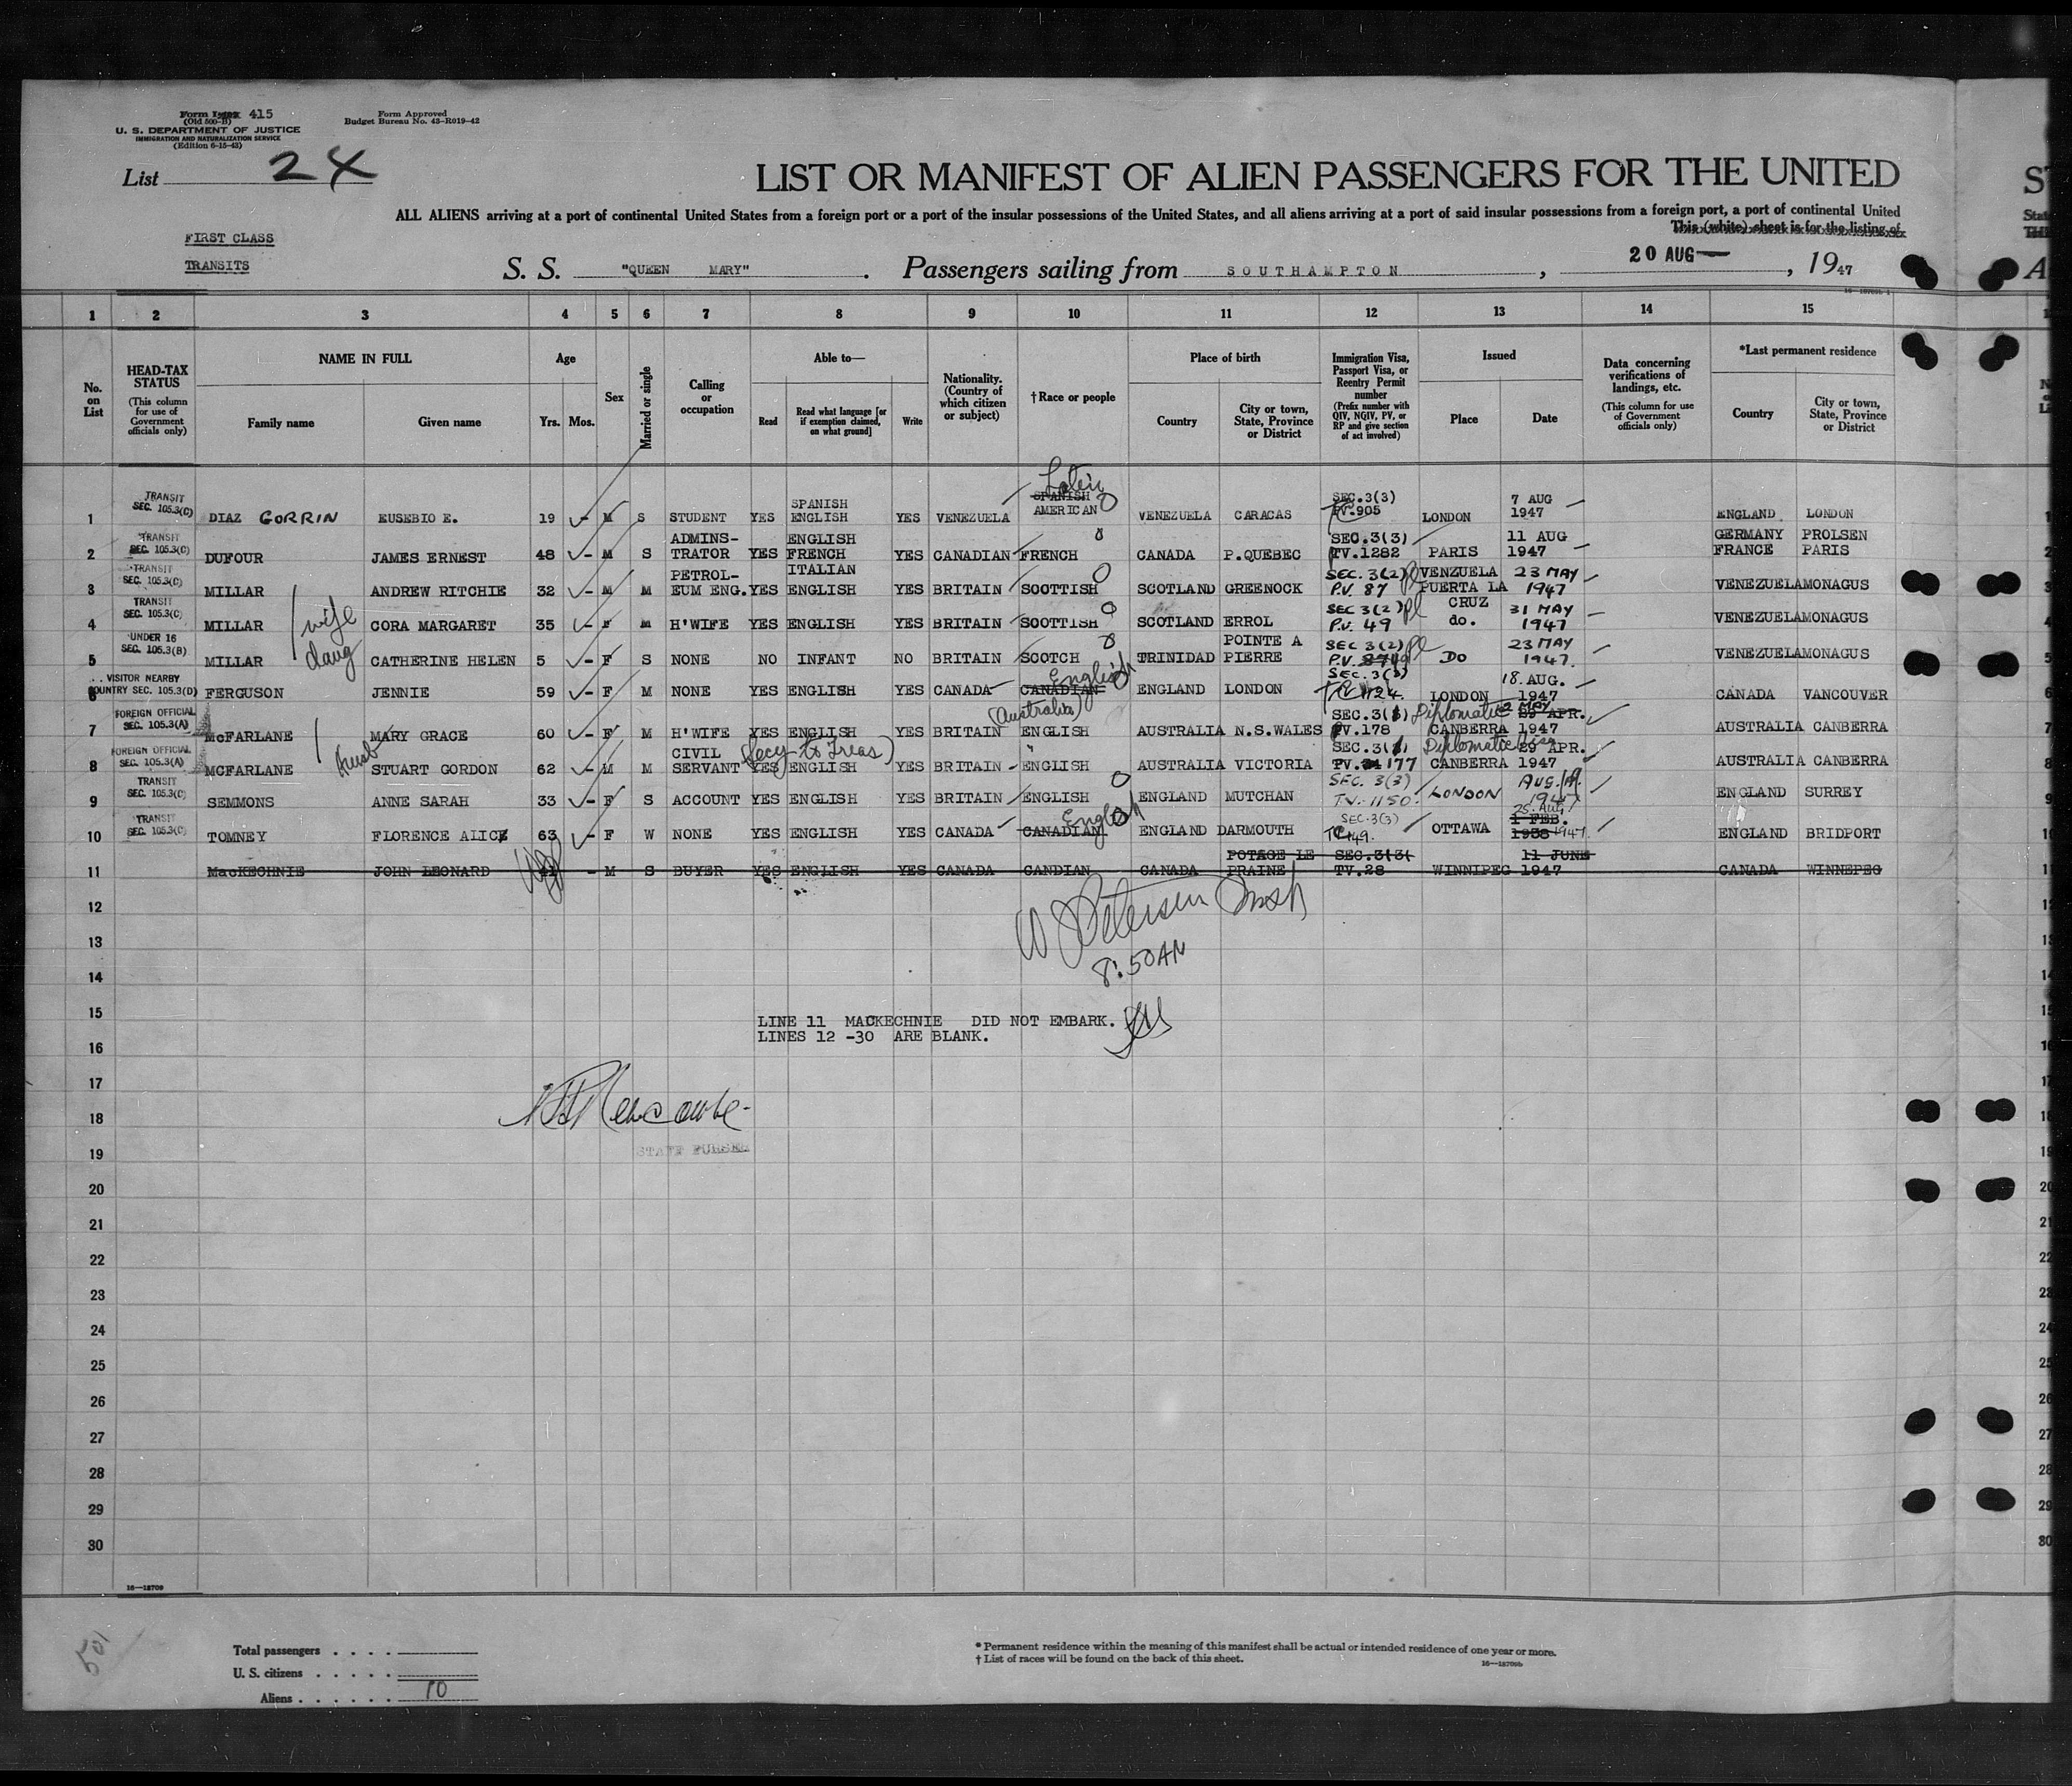 Form 415
(Old 500-B)
U. S. DEPARTMENT OF JUSTICE
IMMIGRATION AND NATURALIZATION SERVICE
(Edition 6-15-43)
Form Approved
Budget Bureau No. 43-R019-42
List 2X
LIST OR MANIFEST OF ALIEN PASSENGERS FOR THE UNITED
ALL ALIENS arriving at a port of continental United States from a foreign port or a port of the insular possessions of the United States, and all aliens arriving at a port of said insular possessions from a foreign port, a port of continental United
This (white) sheet is for the listing of
FIRST CLASS
TRANSITS
S. S. "QUEEN MARY" . Passengers sailing from SOUTHAMPTON , 20 AUG , 1947
1 2 3 4 5 6 7 8 9 10 11 12 13 14 15
No. on List
HEAD-TAX STATUS (This column for use of Government officials only)
NAME IN FULL Family name Given name
Age Yrs. Mos.
Sex
Married or single
Calling or occupation
Able to— Read Read what language [or if exemption claimed, on what ground] Write
Nationality. (Country of which citizen or subject)
†Race or people
Place of birth Country City or town, State, Province or District
Immigration Visa, Passport Visa, or Reentry Permit number (Prefix number with QIV, NQIV, PV, or RP and give section of act involved)
Issued Place Date
Data concerning verifications of landings, etc. (This column for use of Government officials only)
*Last permanent residence Country City or town, State, Province or District
1 TRANSIT SEC. 105.3(C) DIAZ GORRIN EUSEBIO E. 19 M S STUDENT YES SPANISH ENGLISH YES VENEZUELA Latin SPANISH AMERICAN VENEZUELA CARACAS SEC.3(3) PV.905 LONDON 7 AUG 1947 ENGLAND LONDON
2 TRANSIT SEC. 105.3(C) DUFOUR JAMES ERNEST 48 - M S ADMINS-TRATOR YES ENGLISH FRENCH ITALIAN YES CANADIAN FRENCH CANADA P.QUEBEC SEC.3(3) TV.1282 PARIS 11 AUG 1947 GERMANY PROLSEN FRANCE PARIS
3 TRANSIT SEC. 105.3(C) MILLAR ANDREW RITCHIE 32 - M M PETROL-EUM ENG. YES ENGLISH YES BRITAIN SCOTTISH SCOTLAND GREENOCK SEC. 3(2) P.V. 87 VENZUELA PUERTA LA CRUZ 23 MAY 1947 VENEZUELA MONAGUS
4 TRANSIT SEC. 105.3(C) MILLAR wife CORA MARGARET 35 - F M H'WIFE YES ENGLISH YES BRITAIN SCOTTISH SCOTLAND ERROL SEC 3(2) P.V. 49 do. 31 MAY 1947 VENEZUELA MONAGUS
5 UNDER 16 SEC. 105.3(B) MILLAR daug CATHERINE HELEN 5 - F S NONE NO INFANT NO BRITAIN SCOTCH TRINIDAD POINTE A PIERRE SEC 3(2) P.V. Do 23 MAY 1947. VENEZUELA MONAGUS
6 VISITOR NEARBY COUNTRY SEC. 105.3(D) FERGUSON JENNIE 59 - F M NONE YES ENGLISH YES CANADA CANADIAN English ENGLAND LONDON SEC.3(3) 1124. LONDON 18. AUG. 1947 CANADA VANCOUVER
7 FOREIGN OFFICIAL SEC. 105.3(A) McFARLANE MARY GRACE 60 - F M H'WIFE YES ENGLISH YES BRITAIN (Australia) ENGLISH AUSTRALIA N.S.WALES SEC.3(1) PV.178 Diplomatic CANBERRA 2 MAY 29 APR. 1947 AUSTRALIA CANBERRA
8 FOREIGN OFFICIAL SEC. 105.3(A) McFARLANE Husb STUART GORDON 62 - M M CIVIL SERVANT (Secy to Treas) YES ENGLISH YES BRITAIN - " ENGLISH AUSTRALIA VICTORIA SEC.3(1) PV. 177 Diplomatic Visa CANBERRA 29 APR. 1947 AUSTRALIA CANBERRA
9 TRANSIT SEC. 105.3(C) SEMMONS ANNE SARAH 33 - F S ACCOUNT YES ENGLISH YES BRITAIN ENGLISH ENGLAND MUTCHAN SEC. 3(3) T.V. 1150. LONDON AUG. 19 1947 ENGLAND SURREY
10 TRANSIT SEC. 105.3(C) TOMNEY FLORENCE ALICE 63 - F W NONE YES ENGLISH YES CANADA CANADIAN English ENGLAND DARMOUTH SEC.3(3) 149. OTTAWA 25. AUG 1 FEB. 1938 1947. ENGLAND BRIDPORT
11 MacKECHNIE JOHN LEONARD - M S BUYER YES ENGLISH YES CANADA CANDIAN CANADA POTAGE LE PRAINE SEC.3(3( TV.28 WINNIPEG 11 JUNE 1947 CANADA WINNEPEG
12
W Petersen Insp
13
8:50 AM
14
15
LINE 11 MACKECHNIE DID NOT EMBARK.
LINES 12 -30 ARE BLANK.
16
17
18
19
STAFF PURSER
20
21
22
23
24
25
26
27
28
29
30
16—18709
501
Total passengers . . . .
U. S. citizens . . . . .
Aliens . . . . . . 10
* Permanent residence within the meaning of this manifest shall be actual or intended residence of one year or more.
† List of races will be found on the back of this sheet.